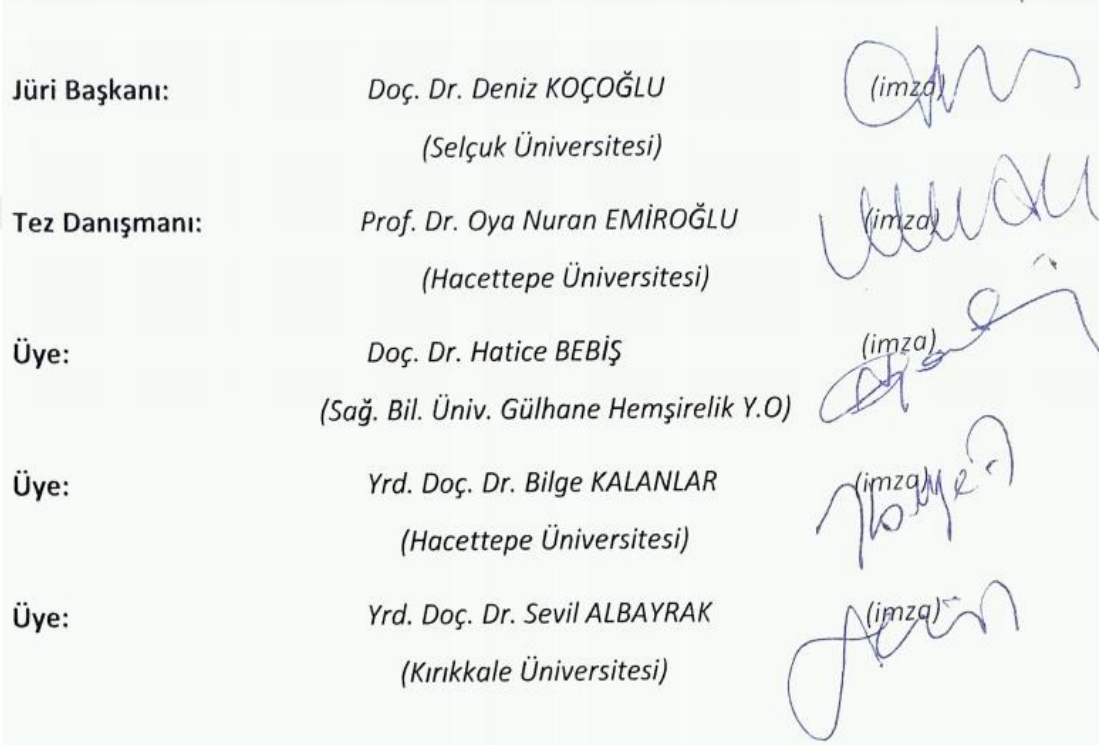 Jüri Başkanı: Doç. Dr. Deniz KOÇOĞLU (imza)
(Selçuk Üniversitesi)
Tez Danışmanı: Prof. Dr. Oya Nuran EMİROĞLU (imza)
(Hacettepe Üniversitesi)
Üye: Doç. Dr. Hatice BEBİŞ (imza)
(Sağ. Bil. Üniv. Gülhane Hemşirelik Y.O)
Üye: Yrd. Doç. Dr. Bilge KALANLAR (imza)
(Hacettepe Üniversitesi)
Üye: Yrd. Doç. Dr. Sevil ALBAYRAK (imza)
(Kırıkkale Üniversitesi)